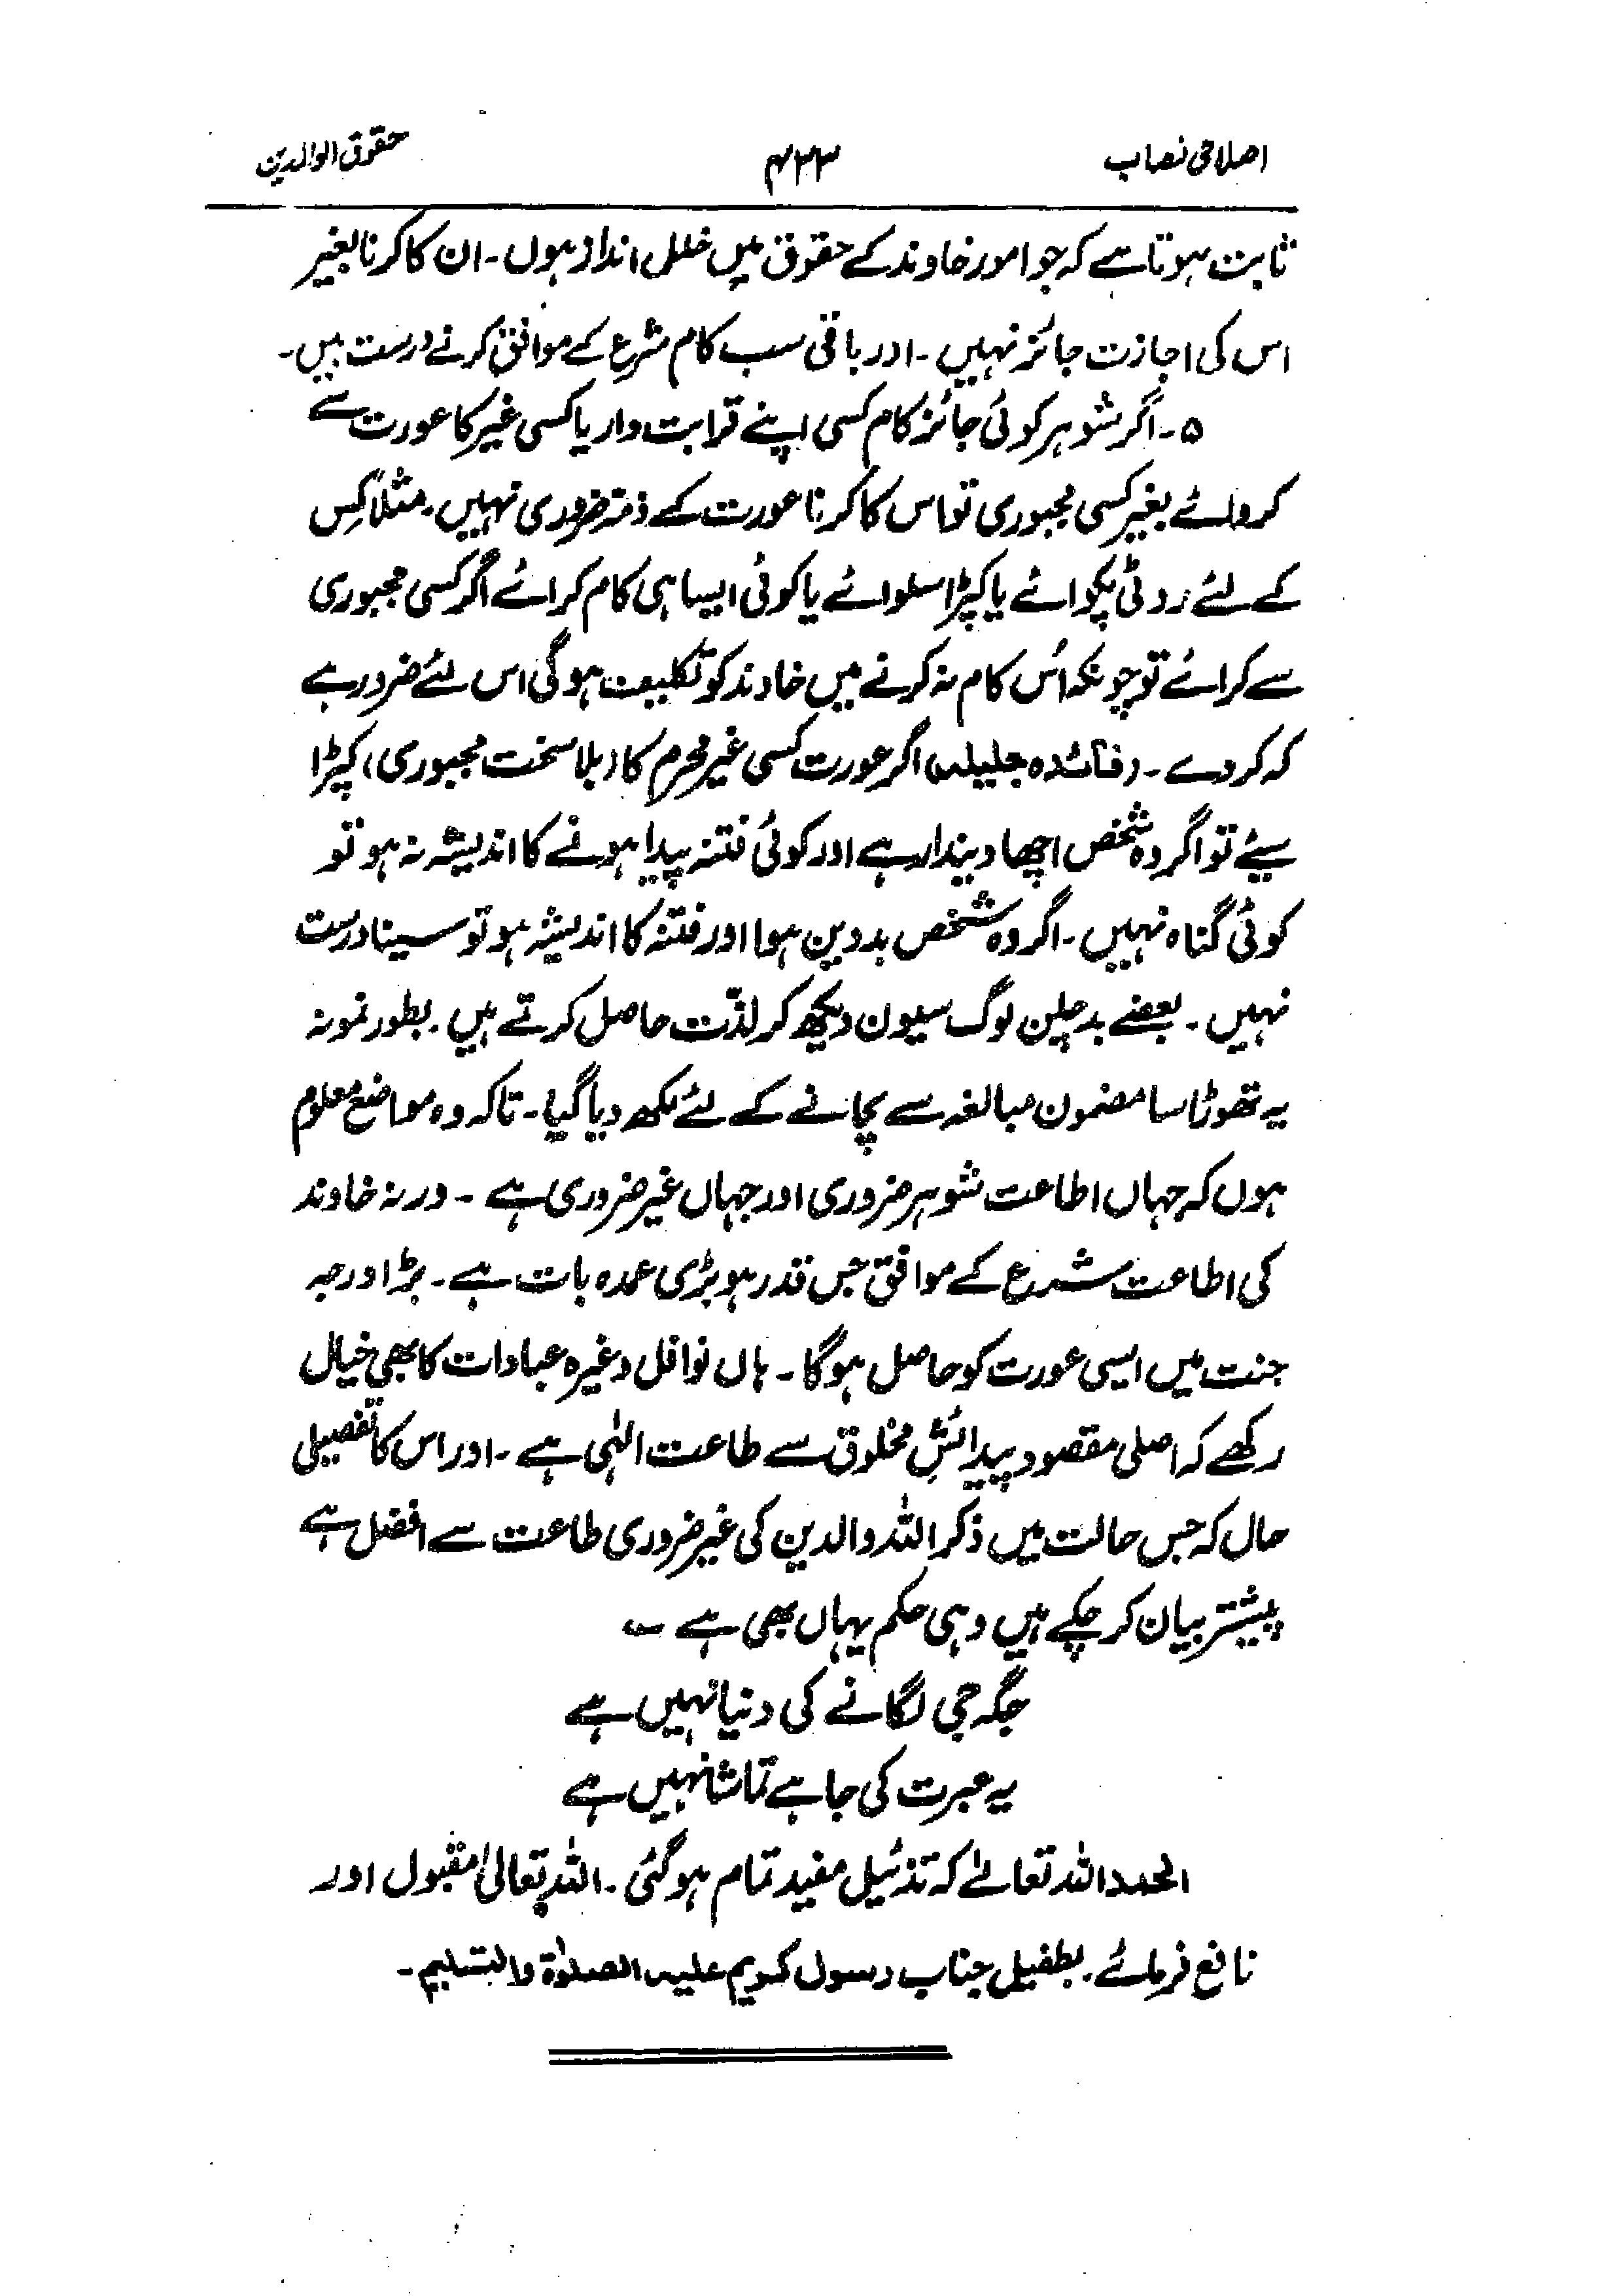 اصلاحی نصاب ۴۳۳ حقوق الوالدین
ثابت ہوتا ہے کہ جو امور خاوند کے حقوق میں خلل انداز ہوں۔ ان کا کرنا بغیر
اس کی اجازت جائز نہیں۔ اور باقی سب کام شرع کے موافق کرنے درست ہیں۔
۵۔ اگر شوہر کوئی جائز کام کسی اپنے قرابت دار یا کسی غیر کا عورت سے
کروائے بغیر کسی مجبوری تو اس کا کرنا عورت کے ذمہ ضروری نہیں۔ مثلاً کِس
کے لئے روٹی پکوائے یا کپڑا سلوائے یا کوئی ایسا ہی کام کرائے اگر کسی مجبوری
سے کرائے تو چونکہ اُس کام نہ کرنے میں خاوند کو تکلیف ہوگی اس لئے ضرور ہے
کہ کر دے۔ (فائدہ جلیلہ) اگر عورت کسی غیر محرم کا (بلا سخت مجبوری) کپڑا
سیئے تو اگر وہ شخص اچھا دیندار ہے اور کوئی فتنہ پیدا ہونے کا اندیشہ نہ ہو تو
کوئی گناہ نہیں۔ اگر وہ شخص بددین ہوا اور فتنہ کا اندیشہ ہو تو سینا درست
نہیں۔ بعضے بدچلن لوگ سیون دیکھ کر لذّت حاصل کرتے ہیں۔ بطور نمونہ
یہ تھوڑا سا مضمون مبالغہ سے بچانے کے لئے لکھ دیا گیا۔ تاکہ وہ مواضع معلوم
ہوں کہ جہاں اطاعت شوہر ضروری اور جہاں غیر ضروری ہے۔ ورنہ خاوند
کی اطاعت شرع کے موافق جس قدر ہو بڑی عمدہ بات ہے۔ بڑا درجہ
جنت میں ایسی عورت کو حاصل ہوگا۔ ہاں نوافل وغیرہ عبادات کا بھی خیال
رکھے کہ اصلی مقصود پیدائشِ مخلوق سے طاعت الٰہی ہے۔ اور اس کا تفصیلی
حال کہ جس حالت میں ذکر اللہ والدین کی غیر ضروری طاعت سے افضل ہے
پیشتر بیان کر چکے ہیں وہی حکم یہاں بھی ہے ؎
جگہ جی لگانے کی دنیا نہیں ہے
یہ عبرت کی جا ہے تماشا نہیں ہے
الحمد اللہ تعالےٰ کہ تذئیل مفید تمام ہوگئی۔ اللہ تعالیٰ مقبول اور
نافع فرمائے۔ بطفیل جناب رسول کریم علیہ الصلوٰۃ والتسلیم۔